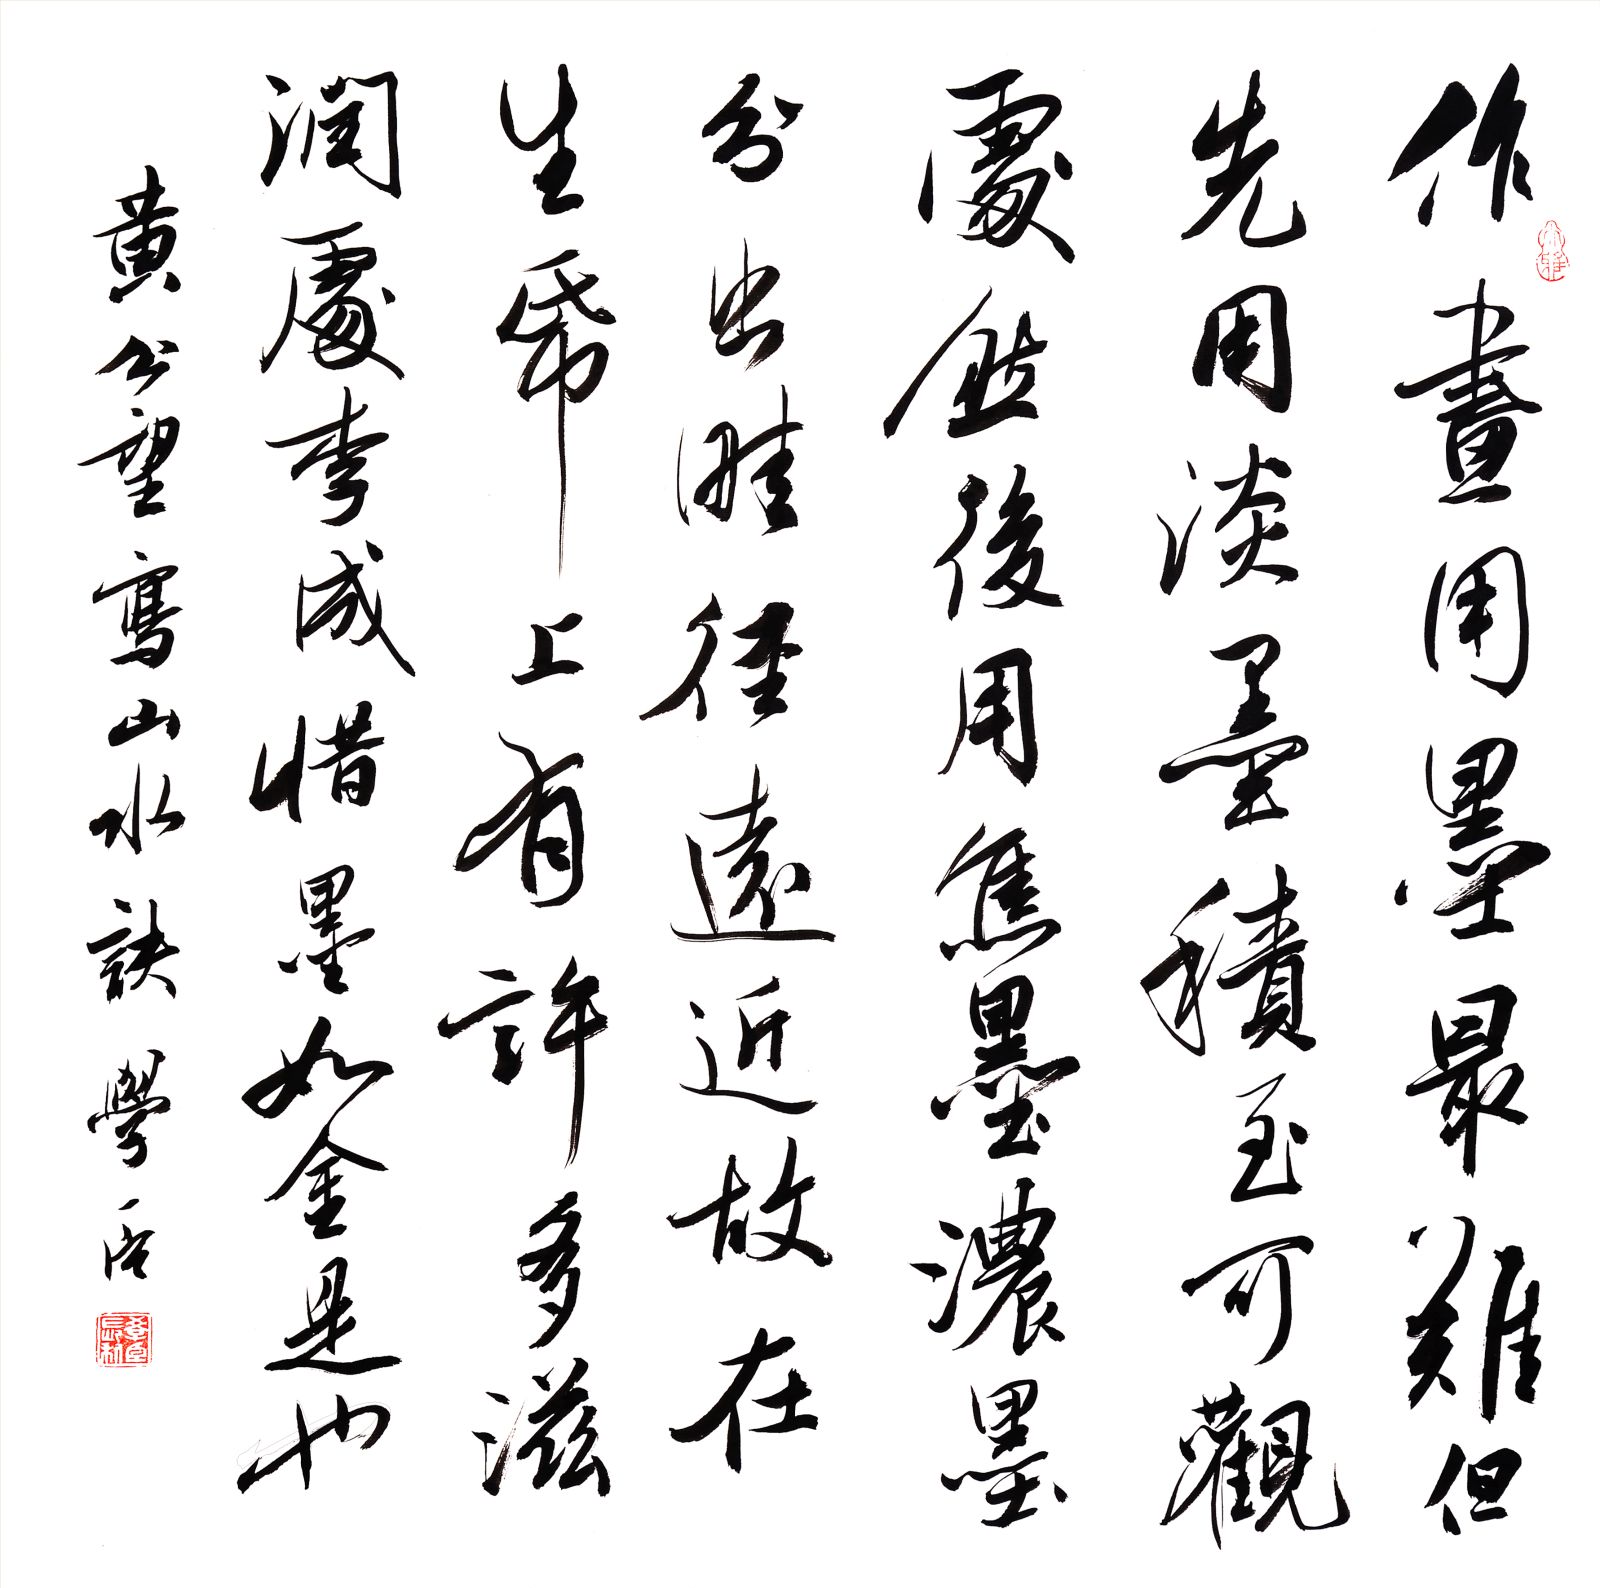 作畫用墨最難但
先用淡墨積至可觀
處然後用焦墨濃墨
分出畦径遠近故在
生帋上有許多滋
潤處李成惜墨如金是也
黃公望寫山水訣 學